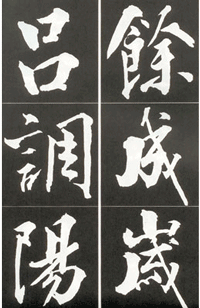 餘成歲
呂調陽